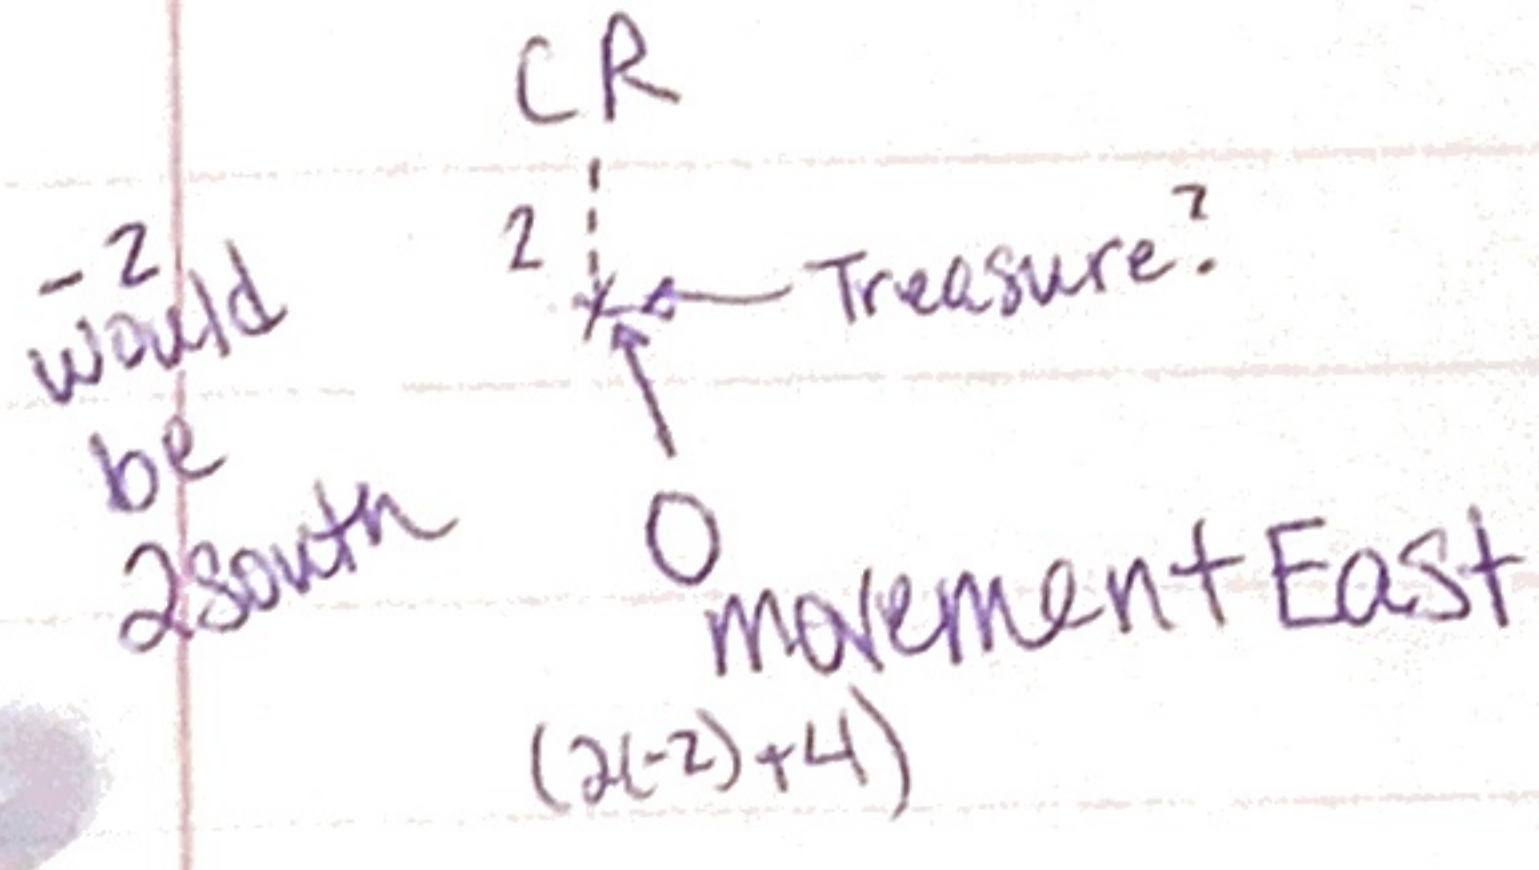 CR
2
Treasure?
-2
would
be
2 south
0
movement East
(2(-2)+4)